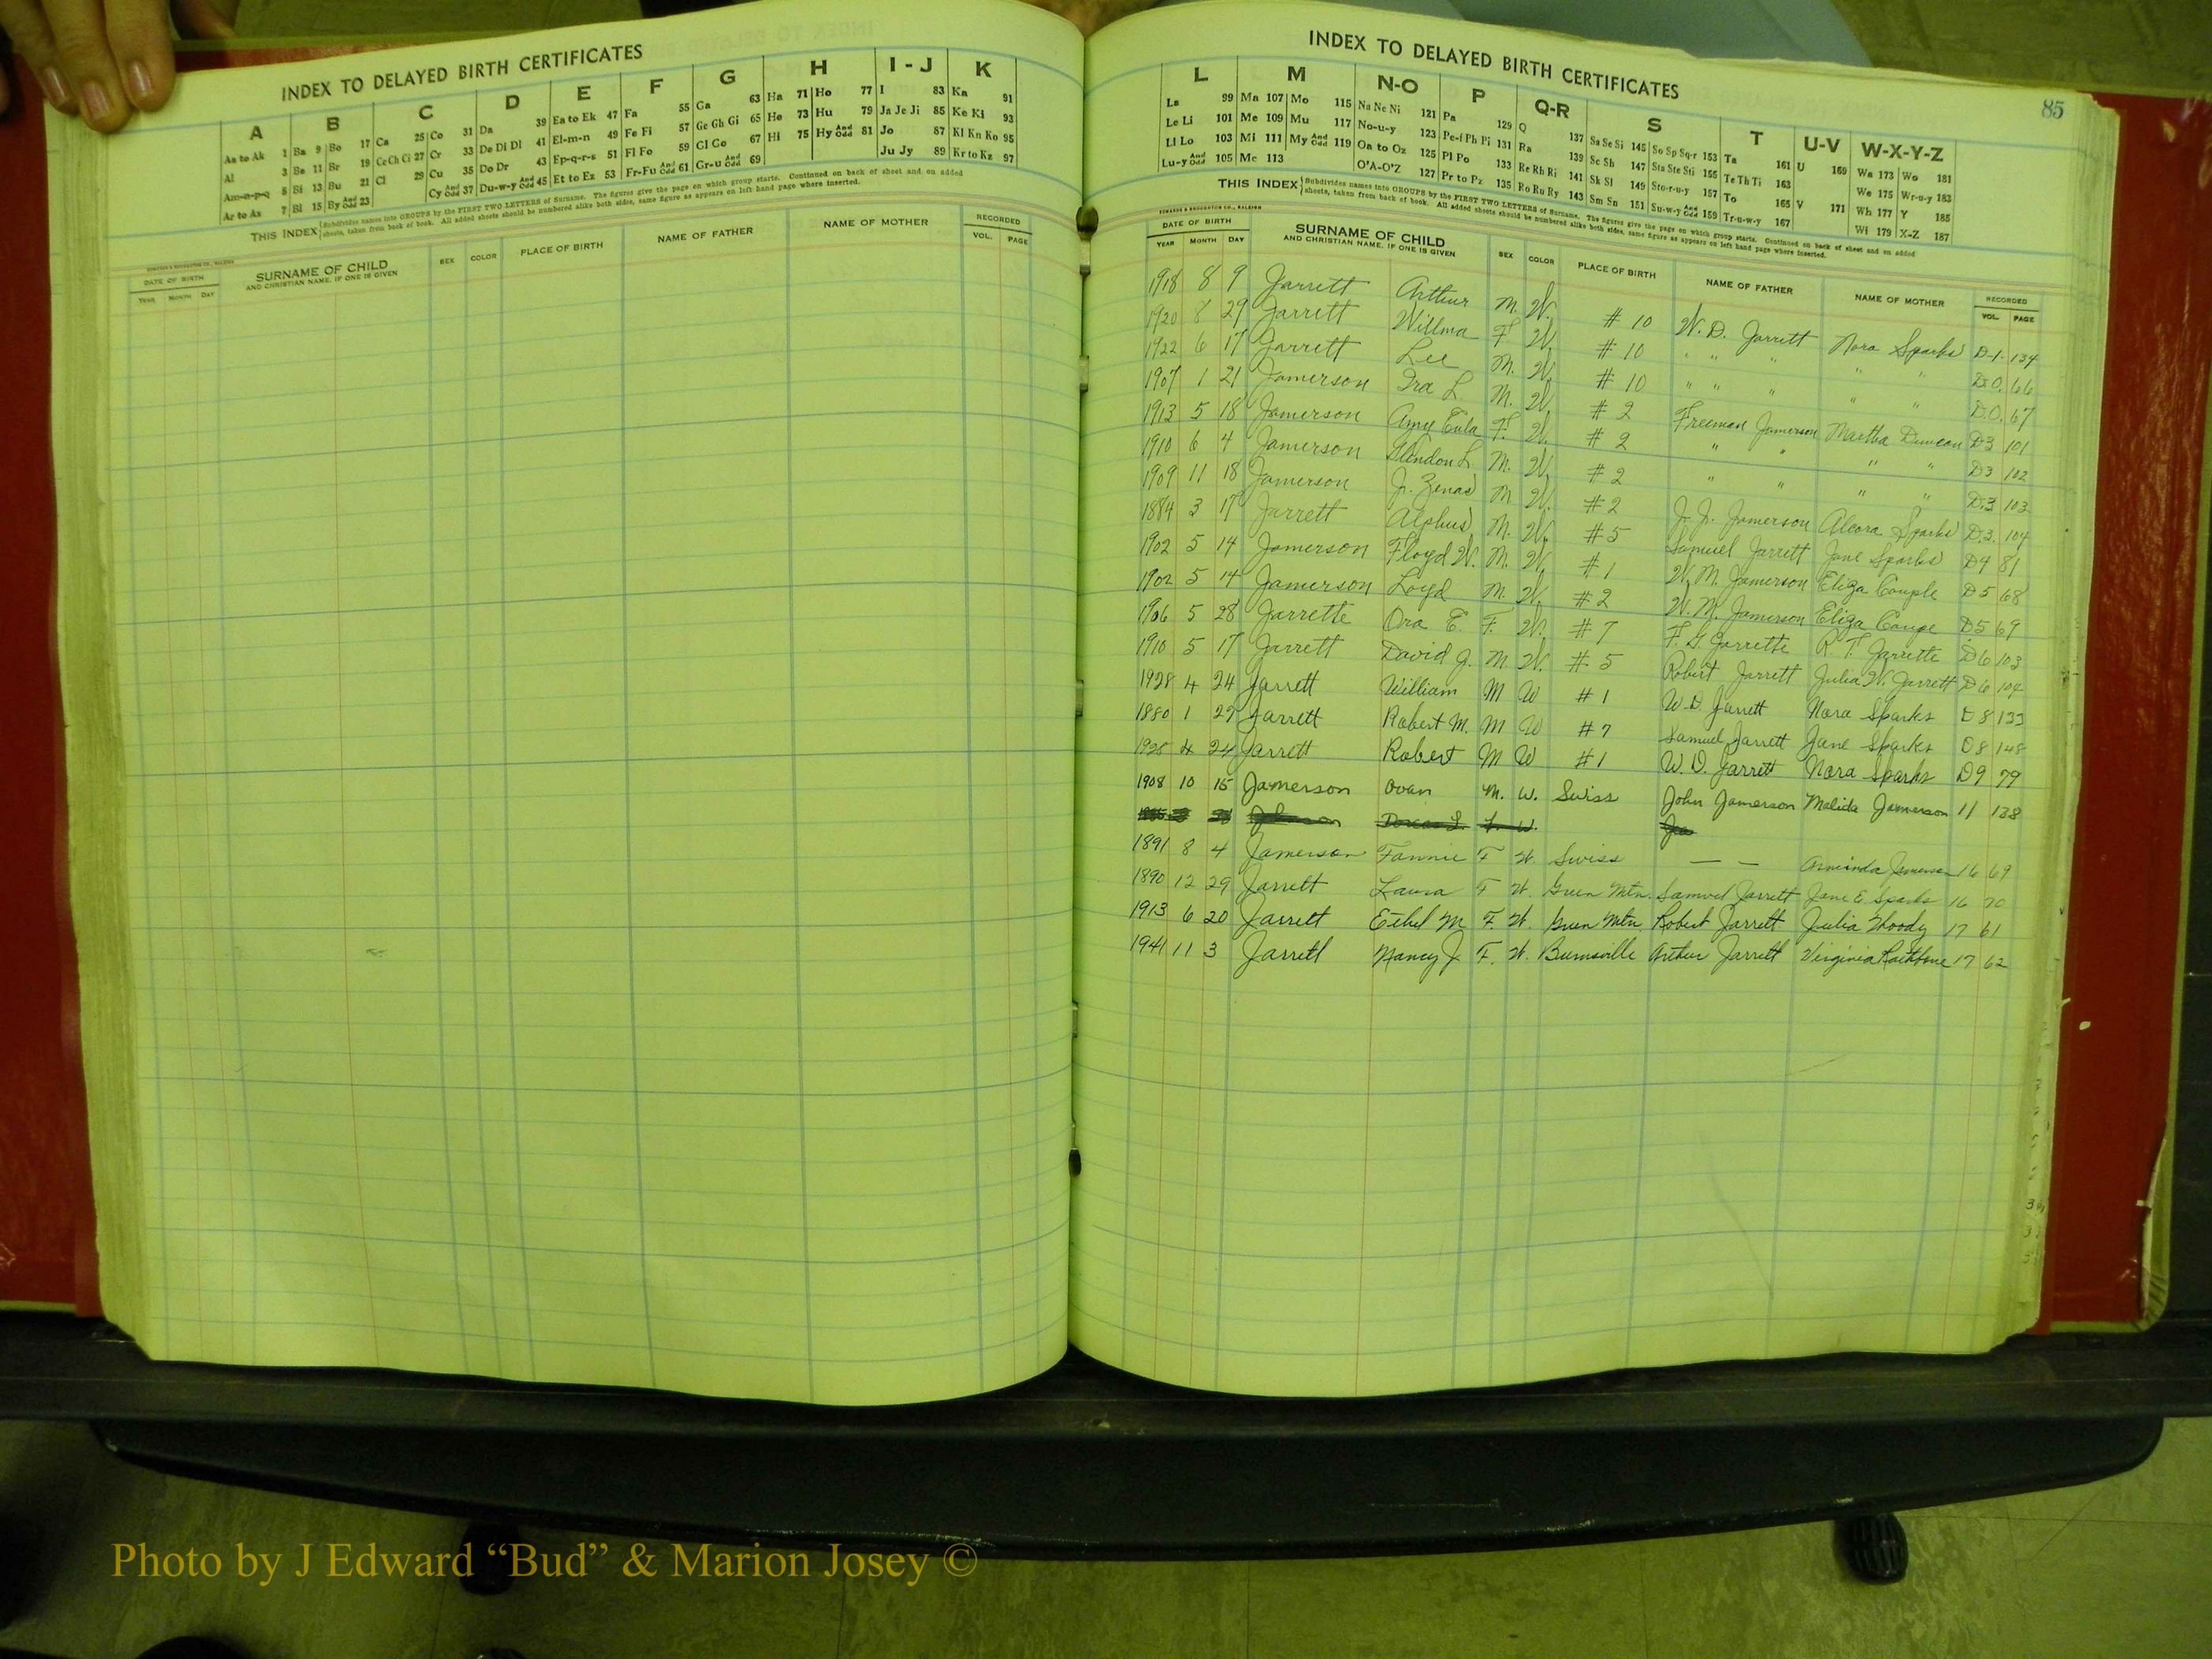 INDEX TO DELAYED BIRTH CERTIFICATES
A B C D E F G H I - J K
Aa to Ak 1 Ba 9 Bo 17 Ca 25 Co 31 Da 39 Ea to Ek 47 Fa 55 Ga 63 Ha 71 Ho 77 I 83 Ka 91
Al 3 Be 11 Br 19 Ce Ch Ci 27 Cr 33 De Di Dl 41 El-m-n 49 Fe Fi 57 Ge Gh Gi 65 He 73 Hu 79 Ja Je Ji 85 Ke Ki 93
Am-n-p-q 5 Bi 13 Bu 21 Cl 29 Cu 35 Do Dr 43 Ep-q-r-s 51 Fl Fo 59 Gl Go 67 Hi 75 Hy And Odd 81 Jo 87 Kl Kn Ko 95
Ar to Ax 7 Bl 15 By And Odd 23 Cy And Odd 37 Du-w-y And Odd 45 Et to Ez 53 Fr-Fu And Odd 61 Gr-u And Odd 69 Ju Jy 89 Kr to Kz 97
THIS INDEX Subdivides names into GROUPS by the FIRST TWO LETTERS of Surname. The figures give the page on which group starts. Continued on back of sheet and on added
sheets, taken from back of book. All added sheets should be numbered alike both sides, same figure as appears on left hand page where inserted.
EDWARDS & BROUGHTON CO., RALEIGH
DATE OF BIRTH SURNAME OF CHILD SEX COLOR PLACE OF BIRTH NAME OF FATHER NAME OF MOTHER RECORDED
YEAR MONTH DAY AND CHRISTIAN NAME, IF ONE IS GIVEN VOL. PAGE
85
INDEX TO DELAYED BIRTH CERTIFICATES
L M N-O P Q-R S T U-V W-X-Y-Z
La 99 Ma 107 Mo 115 Na Ne Ni 121 Pa 129 Q 137 Sa Se Si 145 So Sp Sq-r 153 Ta 161 U 169 Wa 173 Wo 181
Le Li 101 Me 109 Mu 117 No-u-y 123 Pe-f Ph Pi 131 Ra 139 Sc Sh 147 Sta Ste Sti 155 Te Th Ti 163 We 175 Wr-u-y 183
Ll Lo 103 Mi 111 My And Odd 119 Oa to Oz 125 Pl Po 133 Re Rh Ri 141 Sk Sl 149 Sto-r-u-y 157 To 165 V 171 Wh 177 Y 185
Lu-y And Odd 105 Mc 113 O'A-O'Z 127 Pr to Pz 135 Ro Ru Ry 143 Sm Sn 151 Su-w-y And Odd 159 Tr-u-w-y 167 Wi 179 X-Z 187
THIS INDEX Subdivides names into GROUPS by the FIRST TWO LETTERS of Surname. The figures give the page on which group starts. Continued on back of sheet and on added
sheets, taken from back of book. All added sheets should be numbered alike both sides, same figure as appears on left hand page where inserted.
EDWARDS & BROUGHTON CO., RALEIGH
DATE OF BIRTH SURNAME OF CHILD SEX COLOR PLACE OF BIRTH NAME OF FATHER NAME OF MOTHER RECORDED
YEAR MONTH DAY AND CHRISTIAN NAME, IF ONE IS GIVEN VOL. PAGE
1918 8 9 Jarrett Arthur M. W. # 10 W. D. Jarrett Nora Sparks D-1- 134
1920 8 29 Jarrett Willma F W. # 10 " " " " " D.O. 66
1922 6 17 Jarrett Lee M. W. # 10 " " " " " D.O. 67
1907 1 21 Jamerson Ira L. M. W. # 2 Freeman Jamerson Martha Duncan D3 101
1913 5 18 Jamerson Amy Eula F. W. # 2 " " " " D3 102
1910 6 4 Jamerson Glendon L. M. W. # 2 " " " " D.3 103
1909 11 18 Jamerson J. Zenas M W. # 2 J. J. Jamerson Sparks D.3. 104
1884 3 17 Jarrett Alphus M. W. # 5 Samuel Jarrett Jane Sparks D4 81
1902 5 14 Jamerson Floyd W. M. W. # 1 W. M. Jamerson Eliza Couple D5 68
1902 5 14 Jamerson Loyd M. W. # 2 W. M. Jamerson Eliza D5 69
1906 5 28 Jarrette Ora E. F. W. # 7 F. G. Jarrette R. T. Jarrette D6 103
1910 5 17 Jarrett David J. M. W. # 5 Robert Jarrett Julia W. Jarrett D6 104
1928 4 24 Jarrett William M W # 1 W. D. Jarrett Nora Sparks D 8 133
1880 1 29 Jarrett Robert M. M W # 7 Samuel Jarrett Jane Sparks D8 148
1925 4 24 Jarrett Robert M W # 1 W. D. Jarrett Nora Sparks D9 79
1908 10 15 Jamerson Ovan M. W. Swiss John Jamerson Malida Jamerson 11 138
1891 8 4 Jamerson Fannie F W. Swiss — — Jamerson 16 69
1890 12 29 Jarrett Laura F W. Green Mtn. Samuel Jarrett Jane E. Sparks 16 70
1913 6 20 Jarrett Ethel M F. W. Green Mtn. Robert Jarrett Julia Woody 17 61
1941 11 3 Jarrett Nancy J. F. W. Burnsville Arthur Jarrett Virginia Rathbone 17 62
Photo by J Edward “Bud” & Marion Josey ©